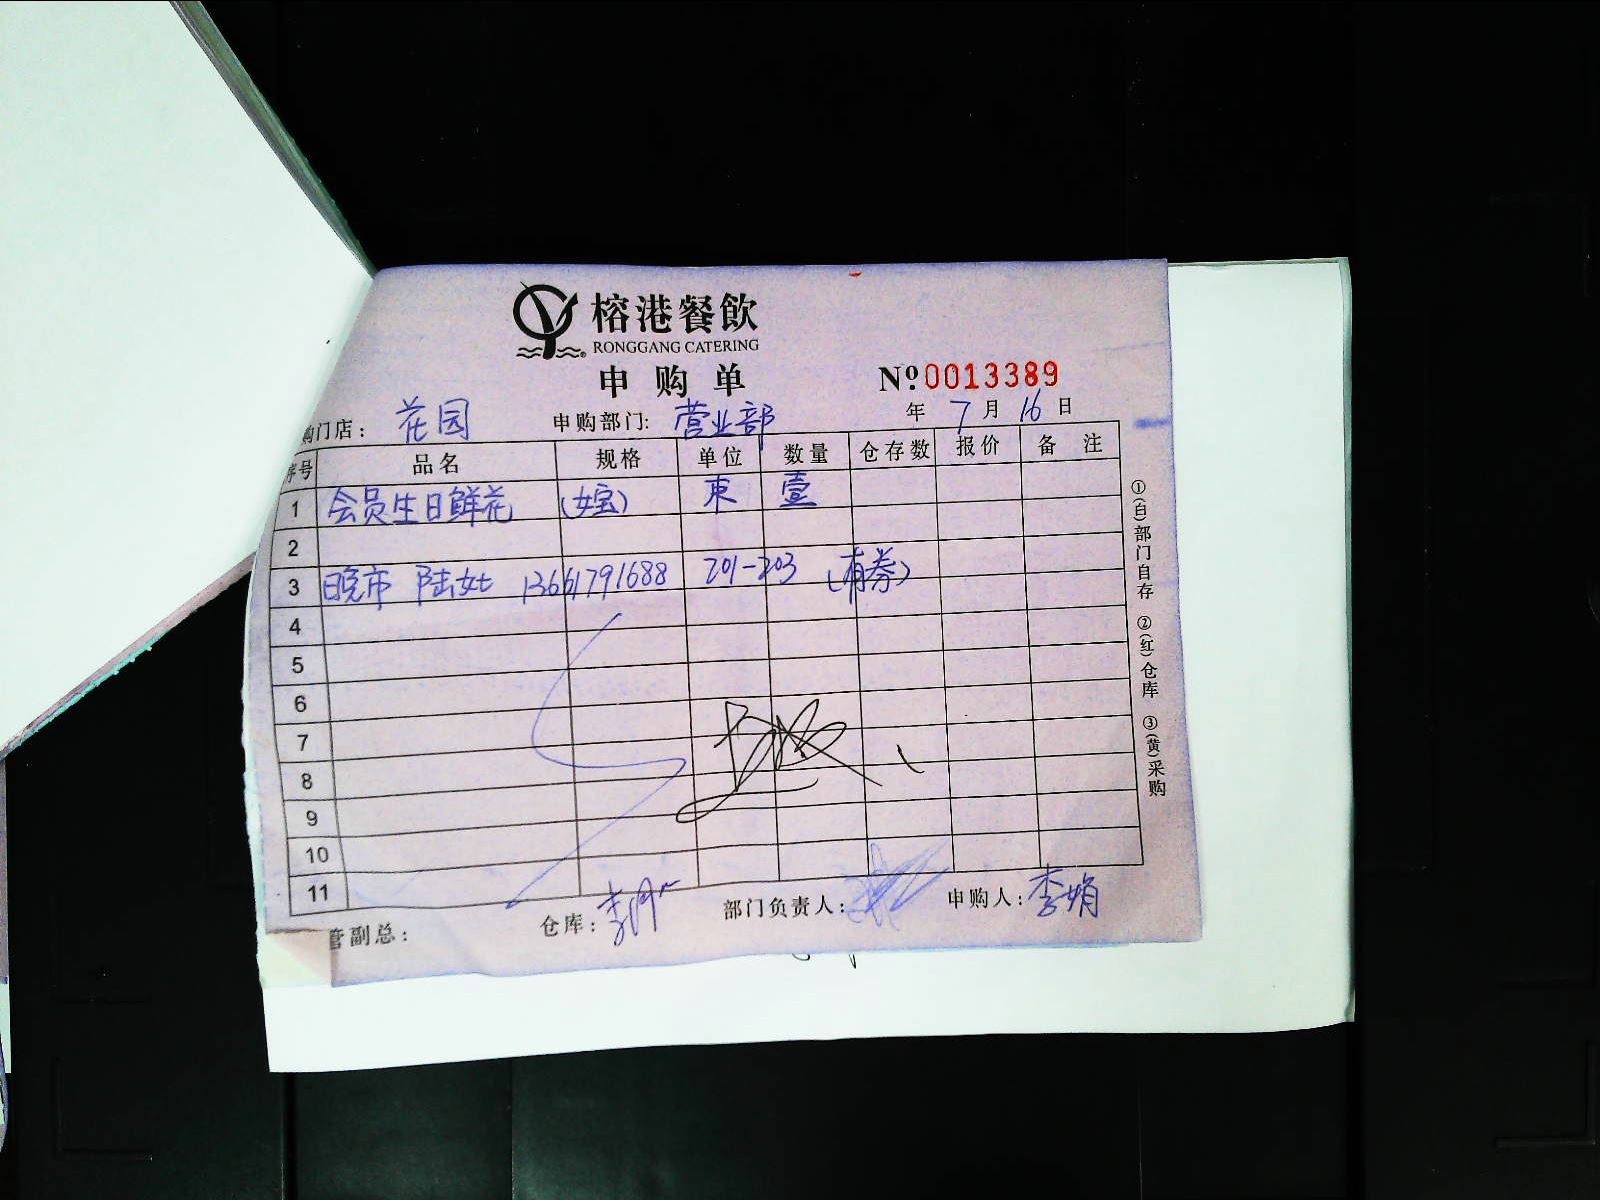 榕港餐飲
RONGGANG CATERING
申购单 Nº:0013389
购门店: 花园 申购部门: 营业部 年 7 月 16 日
序号 品名 规格 单位 数量 仓存数 报价 备注
1 会员生日鲜花 (女宝) 束 壹
2
3 日晚市 陆女士 13661791688 201-203 (有券)
4
5
6
7
8
9
10
11
管副总: 仓库: 部门负责人: 申购人: 李娟
①(白)部门自存 ②(红)仓库 ③(黄)采购